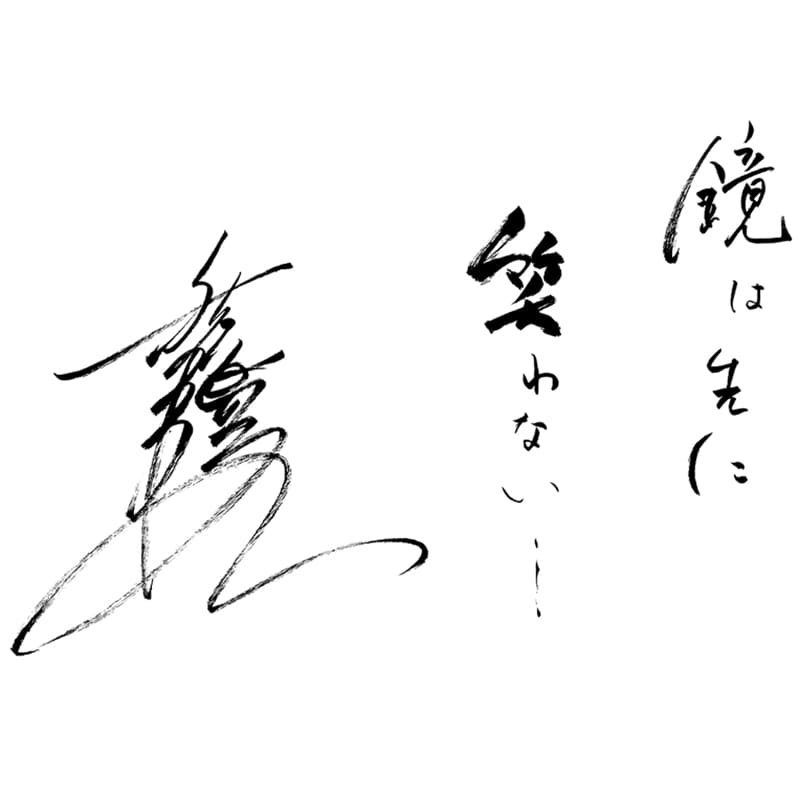 鏡は先に
笑わない…